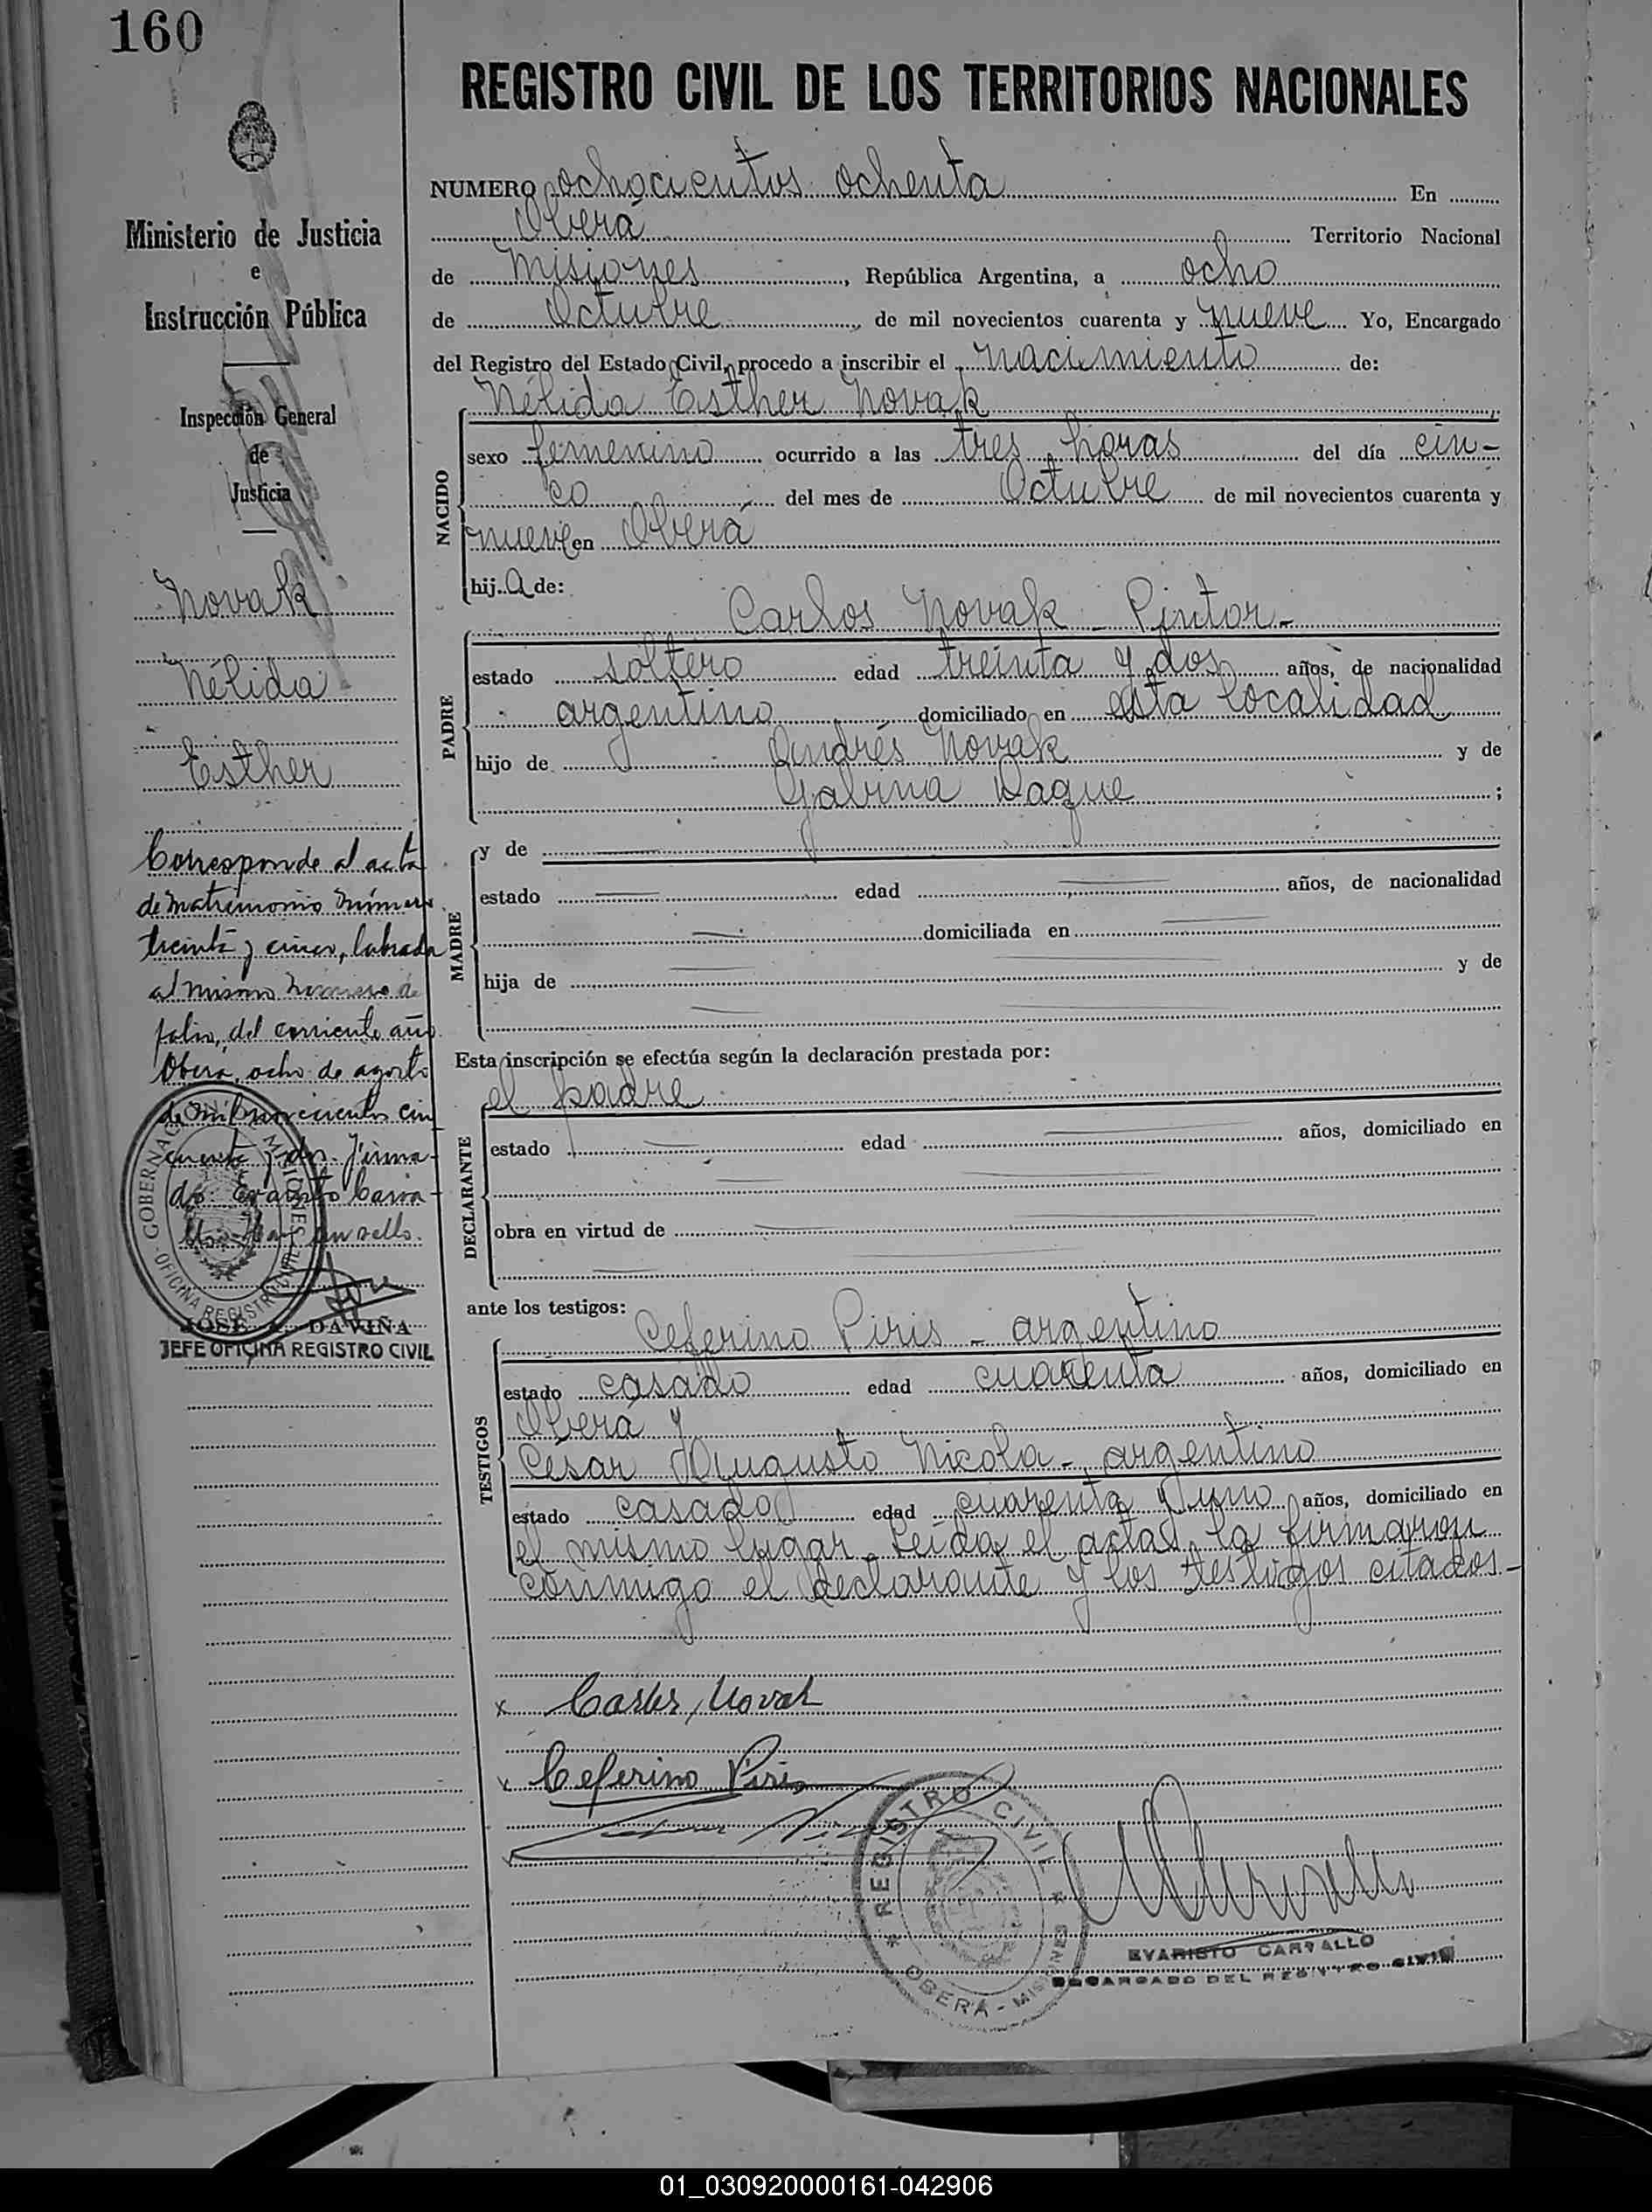 160
REGISTRO CIVIL DE LOS TERRITORIOS NACIONALES
NUMERO ochocientos ochenta En
Oberá Territorio Nacional
de Misiones, República Argentina, a ocho
de Octubre, de mil novecientos cuarenta y nueve Yo, Encargado
del Registro del Estado Civil, procedo a inscribir el nacimiento de:
Ministerio de Justicia
e
Instrucción Pública
Inspección General
de
Justicia
Novak
Nélida
Esther
Corresponde al acta
de matrimonio número
treinta y cinco, labrada
al mismo número de
folio, del corriente año
Oberá, ocho de agosto
de mil novecientos cin
cuenta y dos. Firma-
do: Evaristo Carva-
llo. Hay un sello.
GOBERNACION MISIONES
OFICINA REGISTRO CIVIL
JOSE A. DAVIÑA
JEFE OFICINA REGISTRO CIVIL
NACIDO
Nélida Esther Novak
sexo femenino ocurrido a las tres horas del día cin-
co del mes de Octubre de mil novecientos cuarenta y
nueve en Oberá
hija de:
PADRE
Carlos Novak - Pintor.-
estado soltero edad treinta y dos años, de nacionalidad
argentino domiciliado en esta localidad
hijo de Andrés Novak y de
Gabina Daque;
MADRE
y de
estado edad años, de nacionalidad
domiciliada en
hija de y de
Esta inscripción se efectúa según la declaración prestada por:
DECLARANTE
el padre
estado edad años, domiciliado en
obra en virtud de
ante los testigos:
TESTIGOS
Ceferino Piris - argentino
estado casado edad cuarenta años, domiciliado en
Oberá y
César Augusto Nicola - argentino
estado casado edad cuarenta y uno años, domiciliado en
el mismo lugar. Leída el acta, la firmaron
conmigo el declarante y los testigos citados.-
x Carlos Novak
x Ceferino Piris
REGISTRO CIVIL
OBERÁ - MISIONES
EVARISTO CARVALLO
ENCARGADO DEL REGISTRO CIVIL
01_030920000161-042906